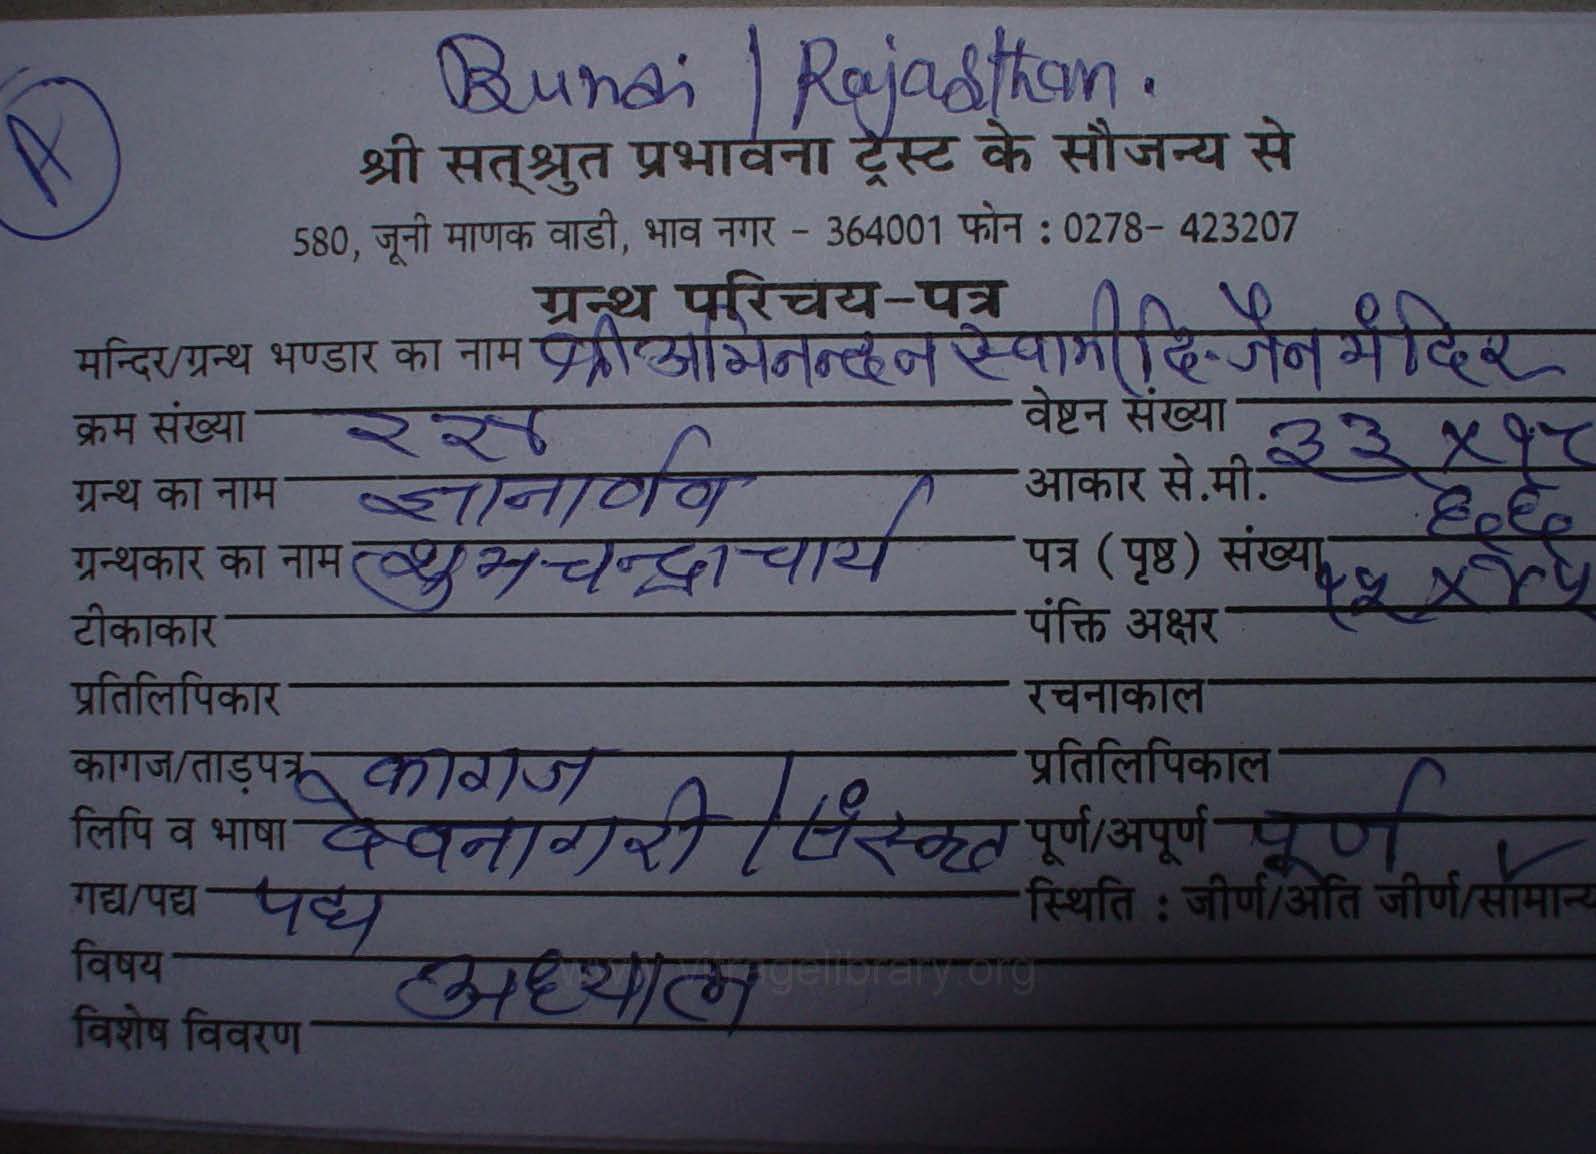 A
Bundi / Rajasthan.
श्री सत्श्रुत प्रभावना ट्रस्ट के सौजन्य से
580, जूनी माणक वाडी, भाव नगर - 364001 फोन : 0278- 423207
ग्रन्थ परिचय-पत्र
मन्दिर/ग्रन्थ भण्डार का नाम श्री अभिनन्दन स्वामी दि. जैन मंदिर
क्रम संख्या वेष्टन संख्या
ग्रन्थ का नाम ज्ञानार्णव आकार से.मी. ३३ x १८
ग्रन्थकार का नाम शुभचन्द्राचार्य पत्र (पृष्ठ) संख्या
टीकाकार पंक्ति अक्षर
प्रतिलिपिकार रचनाकाल
कागज/ताड़पत्र कागज प्रतिलिपिकाल
लिपि व भाषा देवनागरी / संस्कृत पूर्ण/अपूर्ण पूर्ण
गद्य/पद्य पद्य स्थिति : जीर्ण/अति जीर्ण/सामान्य
विषय अध्यात्म
विशेष विवरण